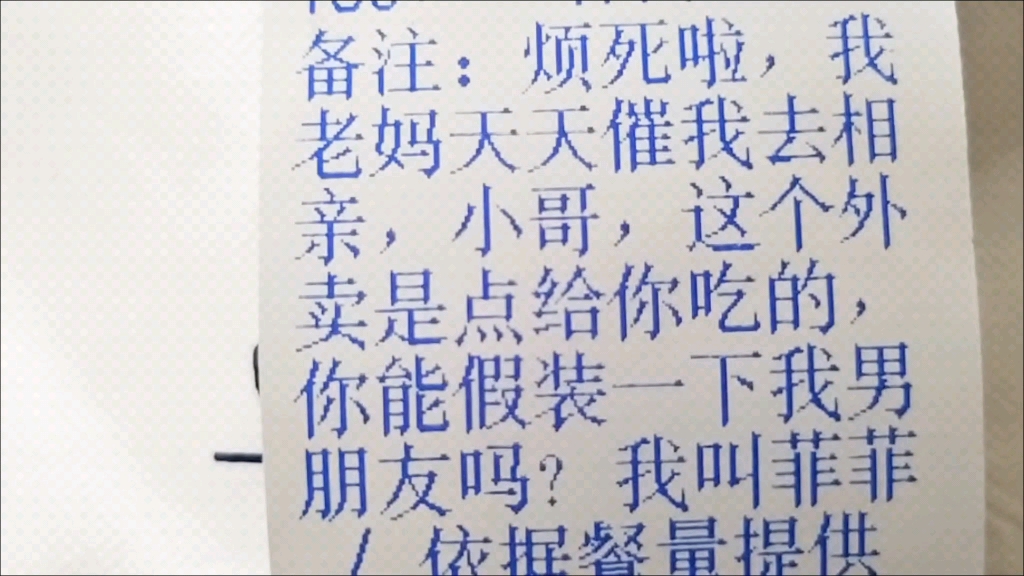 备注：烦死啦，我
老妈天天催我去相
亲，小哥，这个外
卖是点给你吃的，
你能假装一下我男
朋友吗？我叫菲菲
/ 依据餐量提供